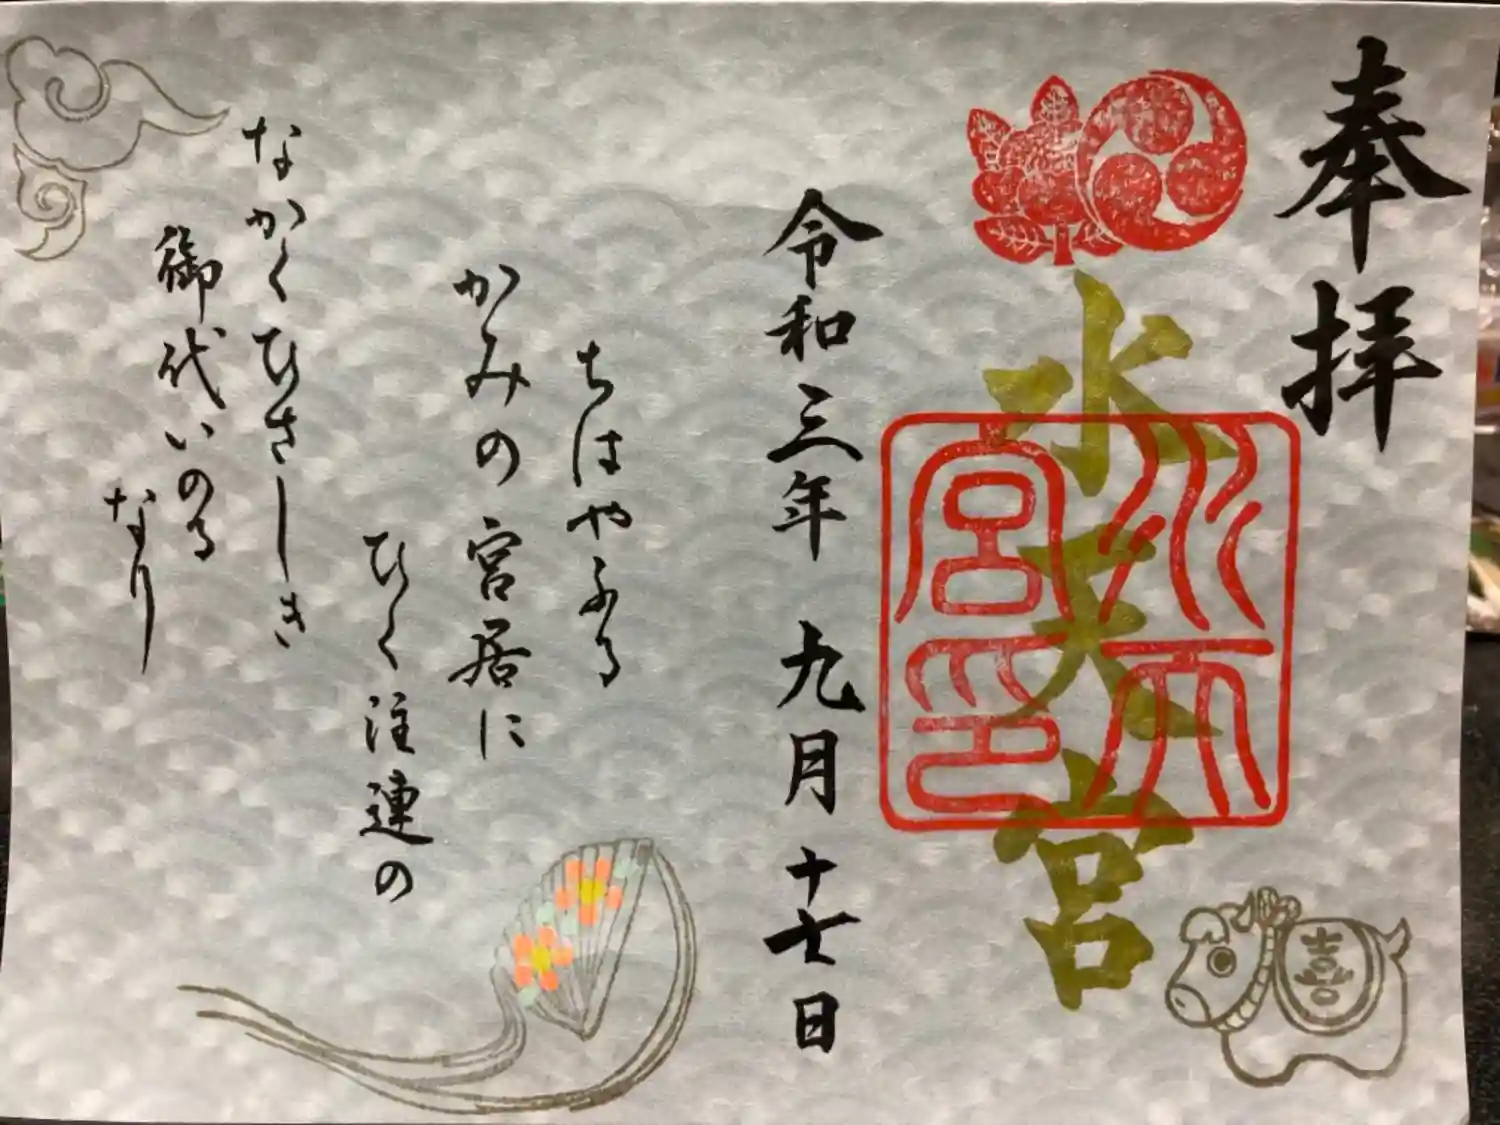 奉拝
水天宮
水天宮印
令和三年 九月十七日
ちはやふる
かみの宮居に
ひく注連の
なかくひさしき
御代いのる
なり